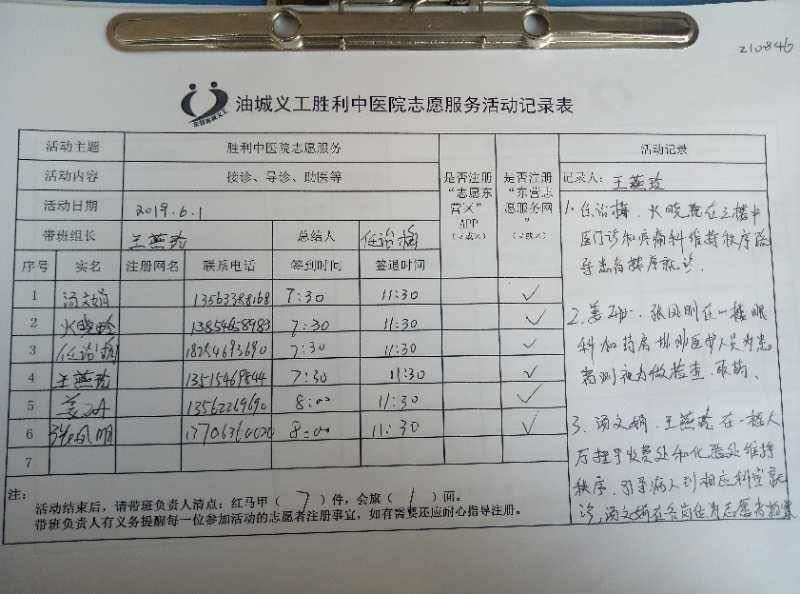 210846
油城义工胜利中医院志愿服务活动记录表
活动主题 胜利中医院志愿服务 是否注册“志愿东营义”APP（√或×） 是否注册“东营志愿服务网”（√或×） 活动记录
活动内容 接诊、导诊、助医等 记录人：王燕玲
活动日期 2019.6.1
带班组长 王燕玲 总结人 任治梅
序号 实名 注册网名 联系电话 签到时间 签退时间
1 汤文娟 13563388168 7:30 11:30 √
2 火晓玲 13854658983 7:30 11:30 √
3 任治梅 18254693690 7:30 11:30 √
4 王燕玲 13515469844 7:30 11:30 √
5 姜 13562269690 8:00 11:30 √
6 张凤明 8:00 11:30 √
7
1. 任治梅、火晓玲在三楼中
医门诊和疼痛科维持秩序疏
导患者排序就诊。
2. 姜 、张凤明在一楼眼
科和药房协助医护人员为患
者测视力做检查、取药、
3、汤文娟、王燕玲在一楼大
厅挂号收费处和化验处维持
秩序，引导病人到相应科室就
诊，汤文娟在各岗位为志愿者拍照
注：
活动结束后，请带班负责人清点：红马甲（7）件，会旗（1）面。
带班负责人有义务提醒每一位参加活动的志愿者注册事宜，如有需要还应耐心指导注册。